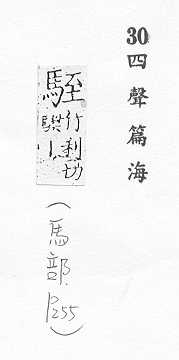 30 四聲篇海
駤 竹利切
(馬部 P255)